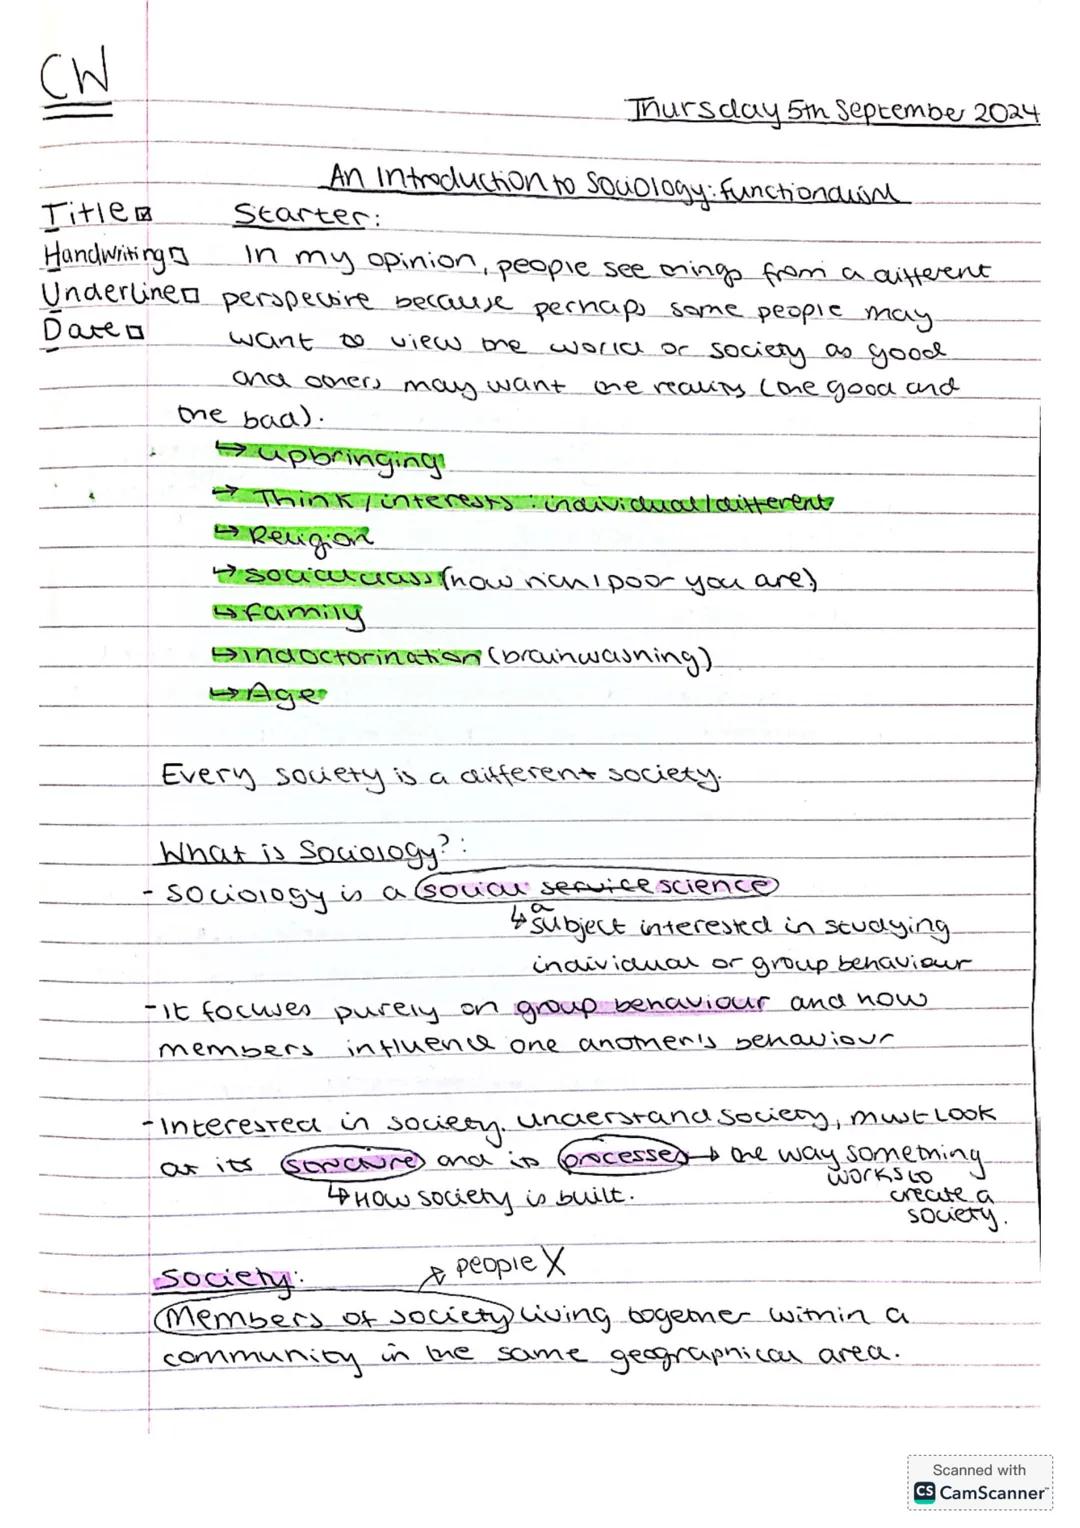 CW
Thursday 5th September 2024
An Introduction to Sociology: functionalism
Title ☑
Starter:
Handwriting ☐
In my opinion, people see things from a different
Underline ☐
perspective because perhaps some people may
Date ☐
want to view the world or society as good
and others may want the reality (the good and
the bad).
↳ upbringing
→ Think / interests : individual / different
↳ Religion
↳ social class (how rich / poor you are)
↳ family
↳ indoctorination (brainwashing)
↳ Age
Every society is a different society.
What is Sociology? :
- sociology is a social service science
↳ a subject interested in studying
individual or group behaviour
- It focuses purely on group behaviour and how
members influence one another's behaviour
- Interested in society. Understand society, must look
at its structure and its processes → the way something
works to
create a
society.
↳ How society is built.
people X
Society:
Members of society living together within a
community in the same geographical area.
Scanned with
CS CamScanner